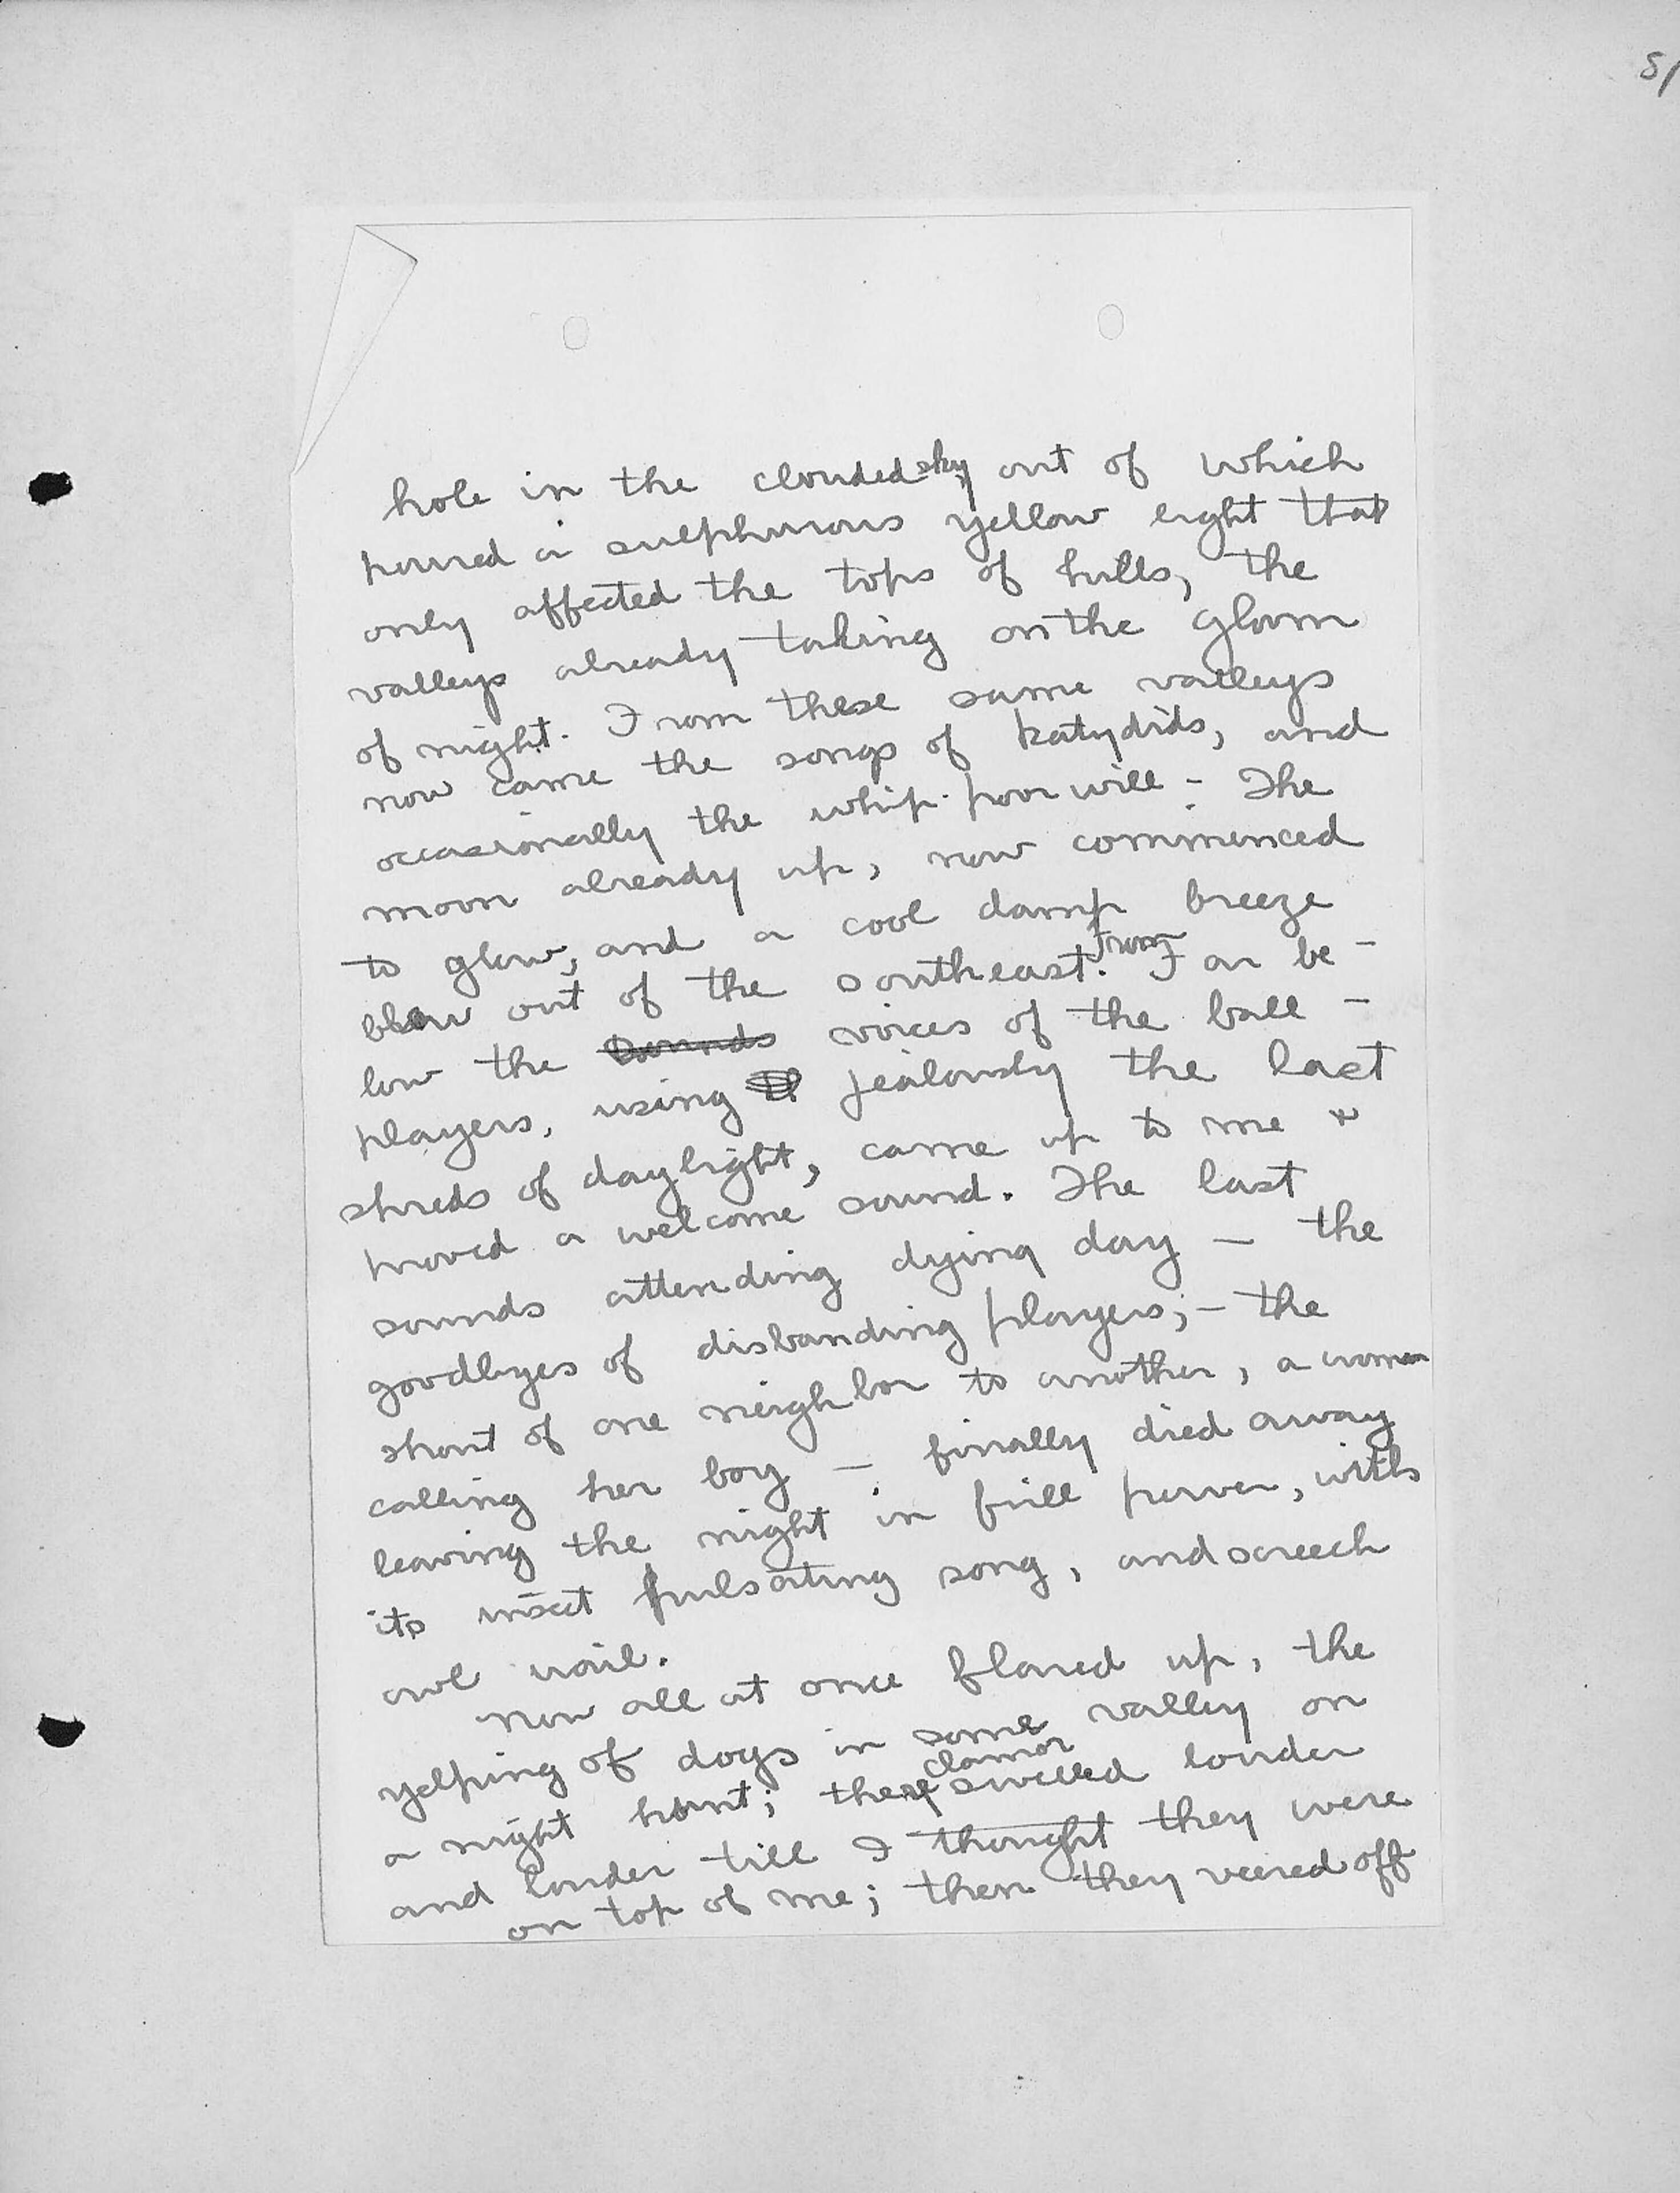 51
hole in the clouded sky, out of which
poured a sulphurous yellow light that
only affected the tops of hills, the
valleys already taking on the gloom
of night. From these same valleys
now came the songs of katydids, and
occasionally the whip-poor will - The
moon already up, now commenced
to glow, and a cool damp breeze
blew out of the southeast. From Far be-
low the sounds voices of the ball-
players, using jealously the last
shreds of daylight, came up to me &
proved a welcome sound. The last
sounds attending dying day — the
goodbyes of disbanding players; - the
shout of one neighbor to another, a woman
calling her boy — finally died away
leaving the night in full power, with
its insect pulsating song, and screech
owl wail.
Now all at once flared up, the
yelping of dogs in some valley on
a night hunt; their clamor swelled louder
and louder till I thought they were
on top of me; then they veered off